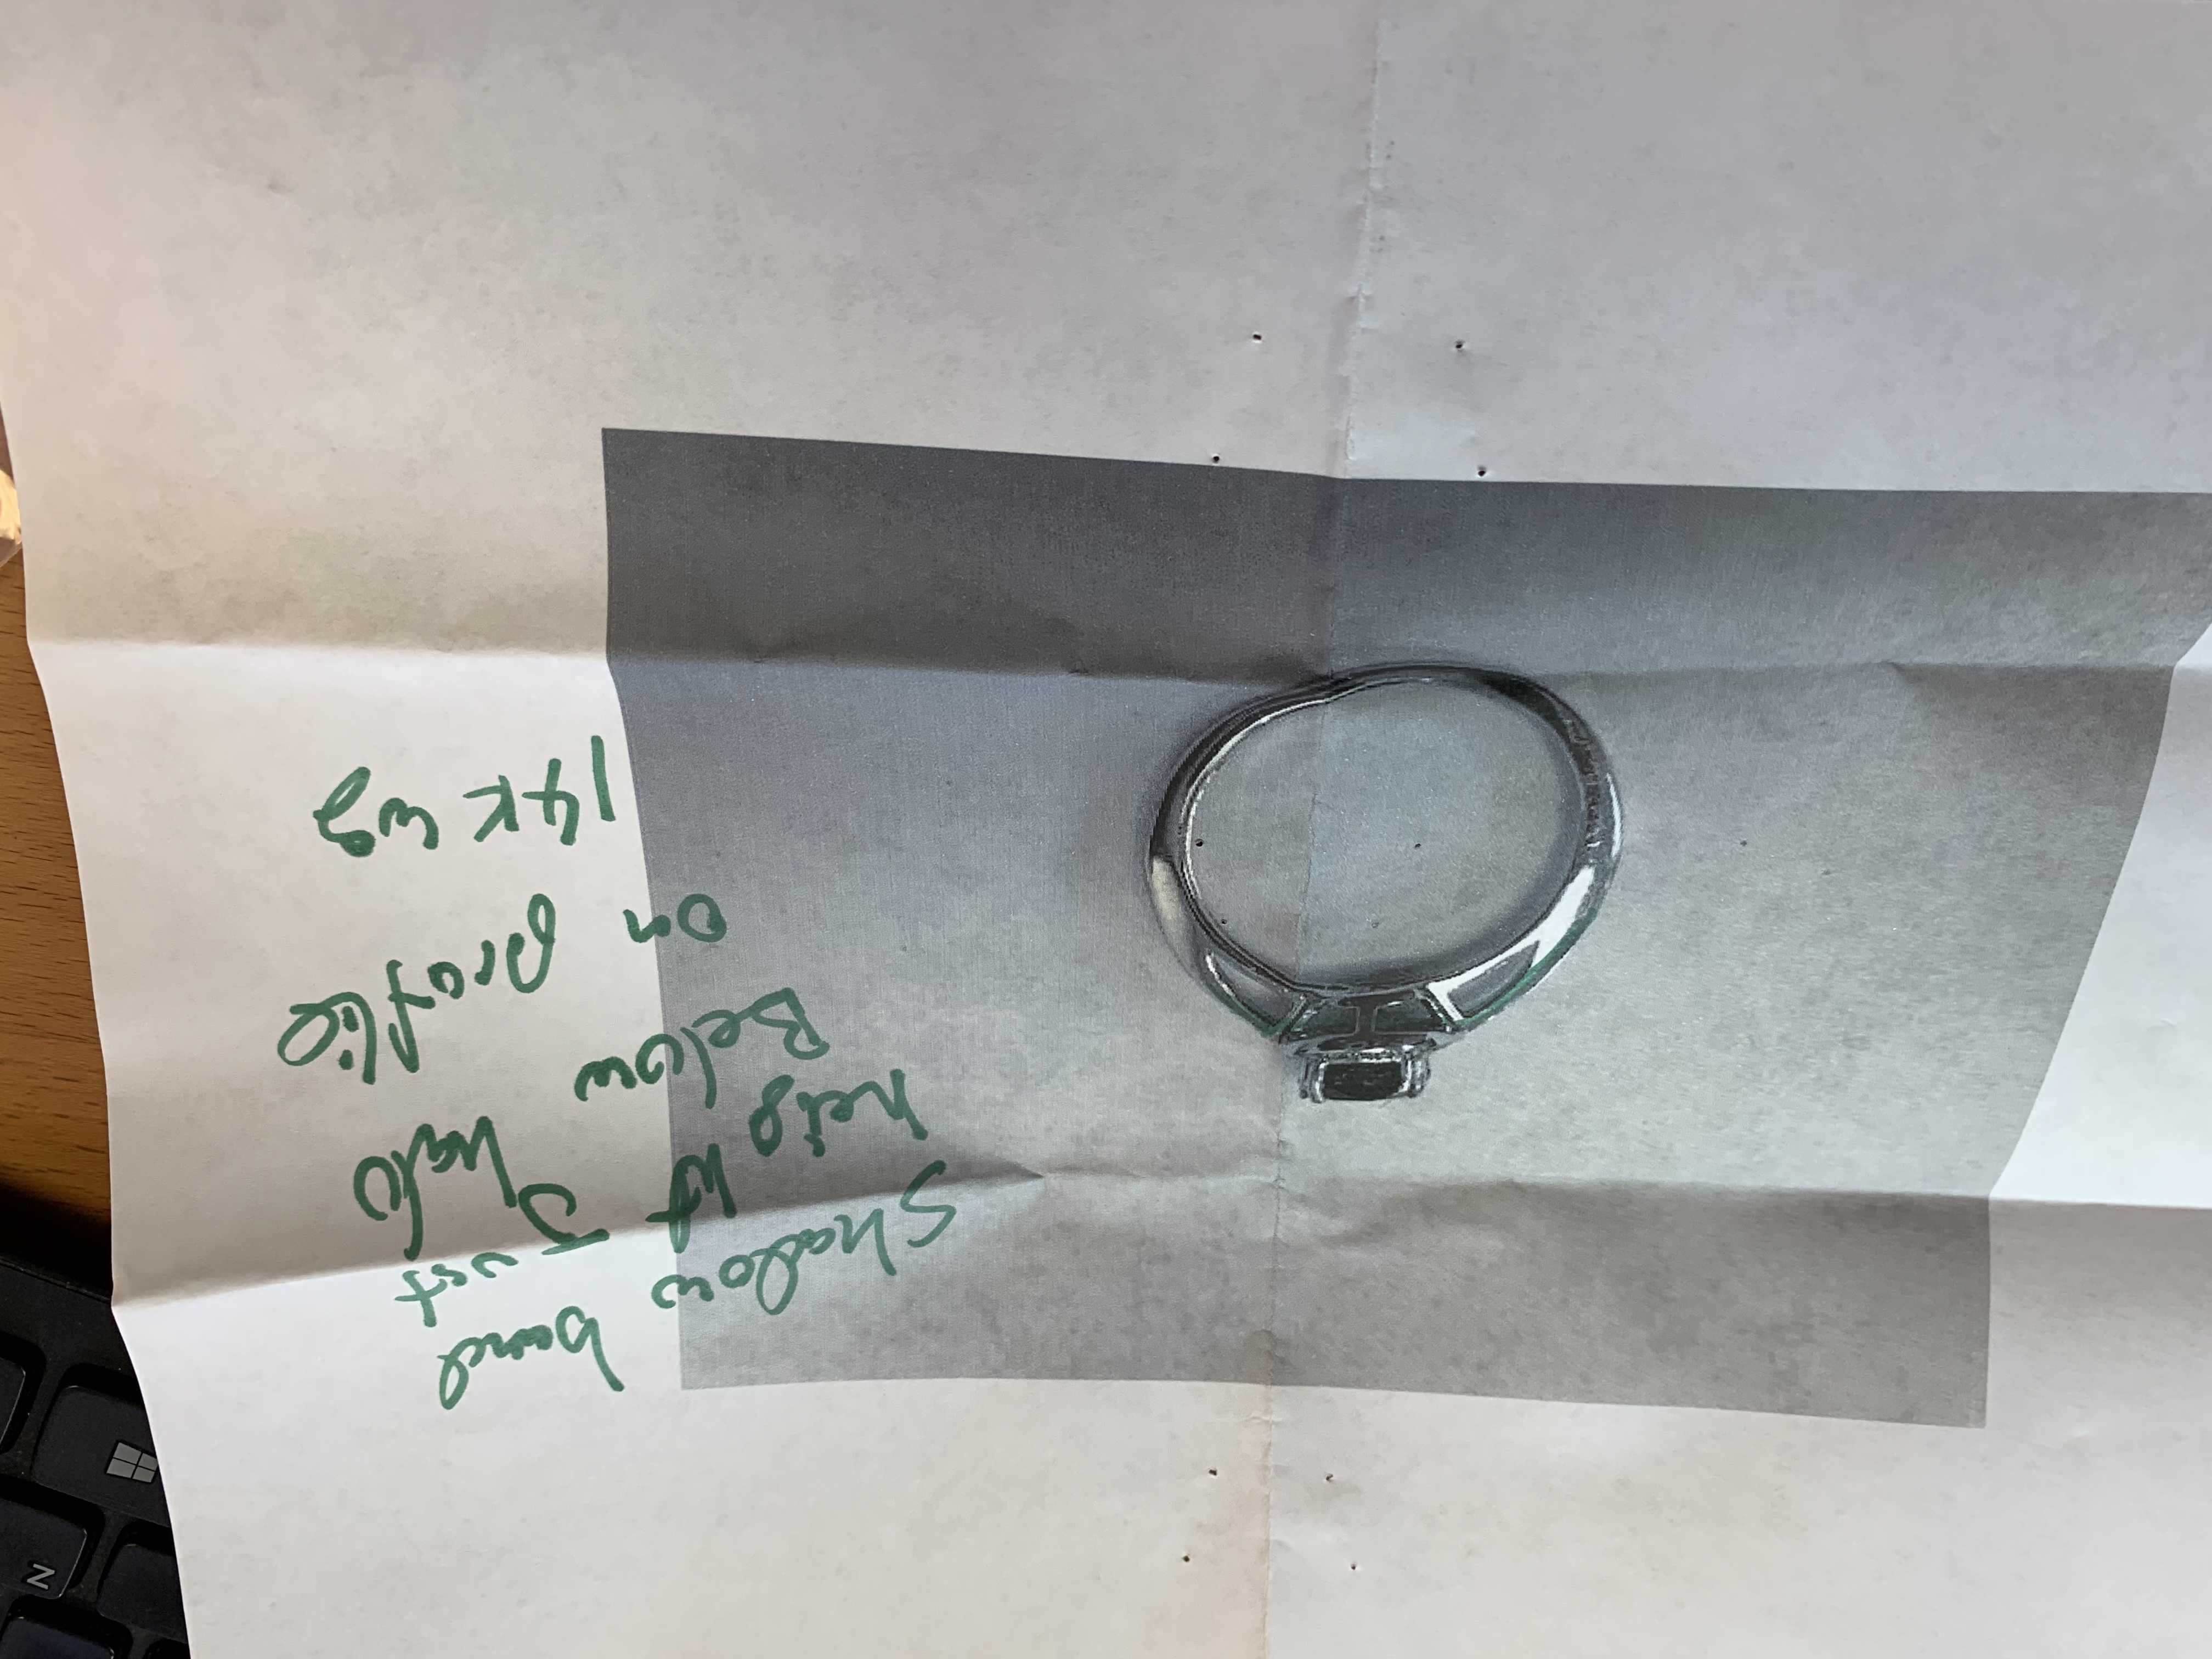 Z
Shalow band
height Just
Below halo
on profile
14K wg